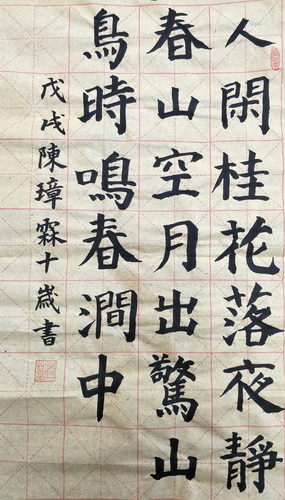 人閑桂花落夜靜
春山空月出驚山
鳥時鳴春澗中
戊戌陳璋霖十歲書